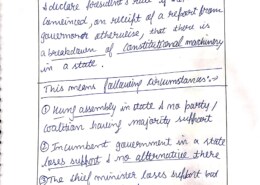 & declare President's rule if
convinced, on receipt of a report from
governor or otherwise, that there is
a breakdown of constitutional machinery
in a state.
This means following circumstances:-
① Hung assembly in state & no party/
coalition having majority support
② Incumbent government in a state
loses support & no alternative there
③ The chief minister loses support but